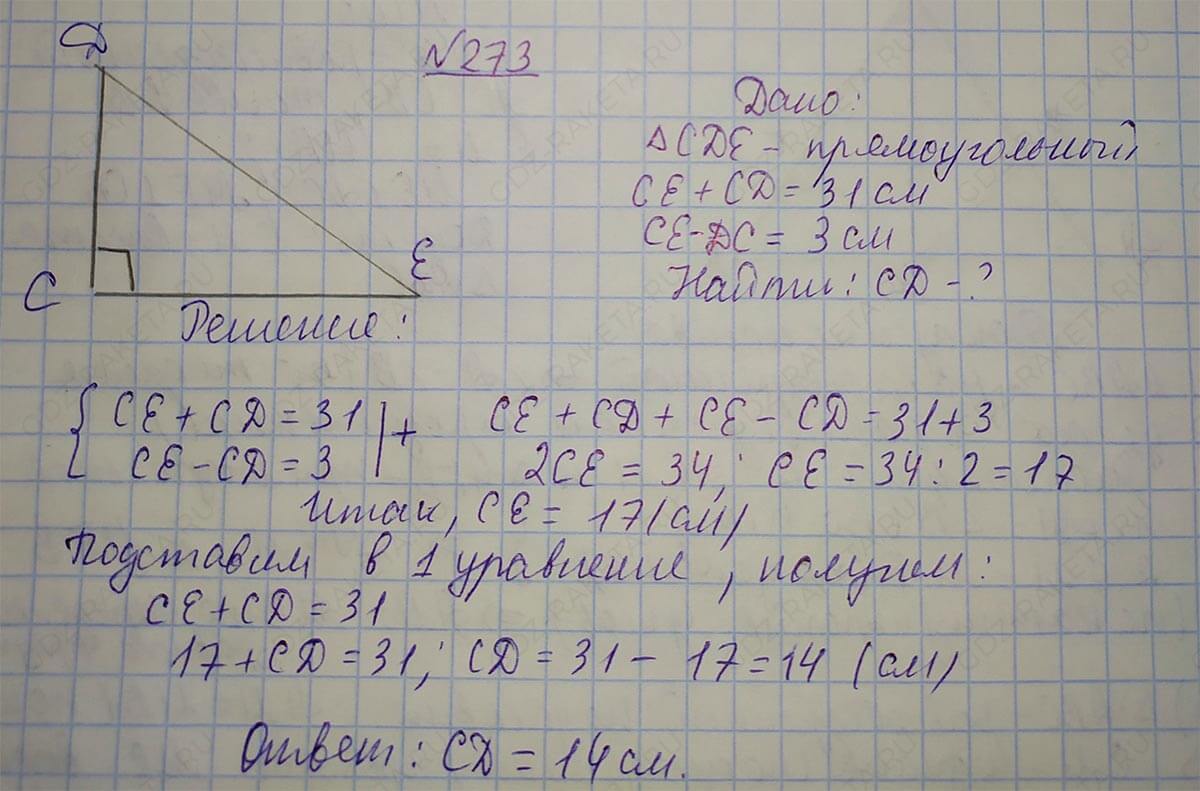 N273
D
C
E
Дано:
ΔCDE - прямоугольный
CE + CD = 31 см
CE - DC = 3 см
Найти: CD - ?
Решение:
{ CE + CD = 31 | + CE + CD + CE - CD = 31 + 3
CE - CD = 3 | 2CE = 34; CE = 34 : 2 = 17
Итак, CE = 17 (см)
Подставим в 1 уравнение, получим:
CE + CD = 31
17 + CD = 31; CD = 31 - 17 = 14 (см)
Ответ: CD = 14 см.